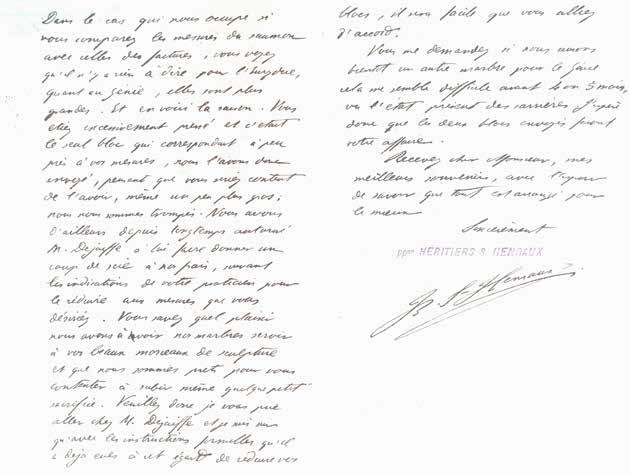 Dans le cas qui nous occupe si
vous comparez les mesures du saumon
avec celles des factures, vous voyez
qu'il n'y a rien à dire pour l'
quant au génie, elles sont plus
grandes. Et en voici la raison. Vous
étiez excessivement pressé et c'était
le seul bloc qui correspondait à peu
près à vos mesures, nous l'avons donc
envoyé, pensant que vous seriez content
de l'avoir, même un peu plus gros;
nous nous sommes trompés. Nous avons
d'ailleurs depuis longtemps autorisé
M. Dejaiffe à lui faire donner un
coup de scie à nos frais, suivant
les indications de votre praticien pour
le réduire aux mesures que vous
désiriez. Vous savez quel plaisir
nous avons à voir nos marbres servir
à vos beaux morceaux de sculpture
et que nous sommes prêts pour vous
contenter à subir même quelque petit
sacrifice. Veuillez donc je vous prie
aller chez M. Dejaiffe et je suis sur
qu'avec les instructions formelles qu'il
a déjà eues à cet égard de réduire vos
blocs, il sera facile que vous alliez
d'accord.
Vous me demandez si nous aurons
bientôt un autre marbre pour le génie
cela me semble difficile avant bon 5 mois,
vu l'état présent des carrières. J'espère
donc que les deux blocs envoyés feront
votre affaire.
Recevez cher Monsieur, mes
meilleurs souvenirs, avec l'espoir
de savoir que tout est arrangé pour
le mieux
Sincèrement
ppon HÉRITIERS S. HENRAUX
Henraux